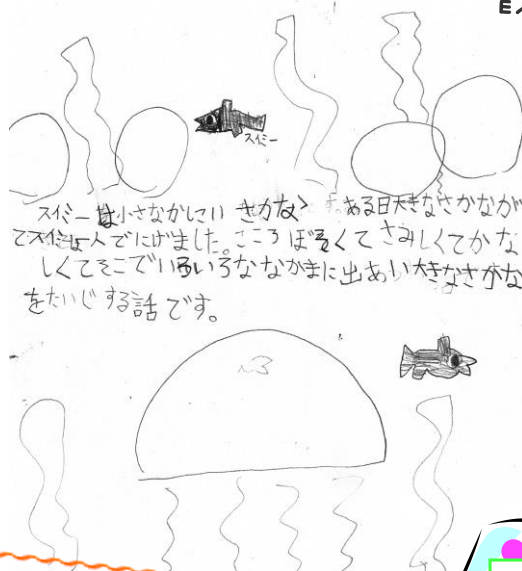 スイミー
スイミーは小さなかしこいさかな ある日大きなさかなが
でスイミーは一人でにげました。こころぼそくてさみしくてかな
しくてそこでいろいろななかまに出あい大きなさかな
をたいじする話です。